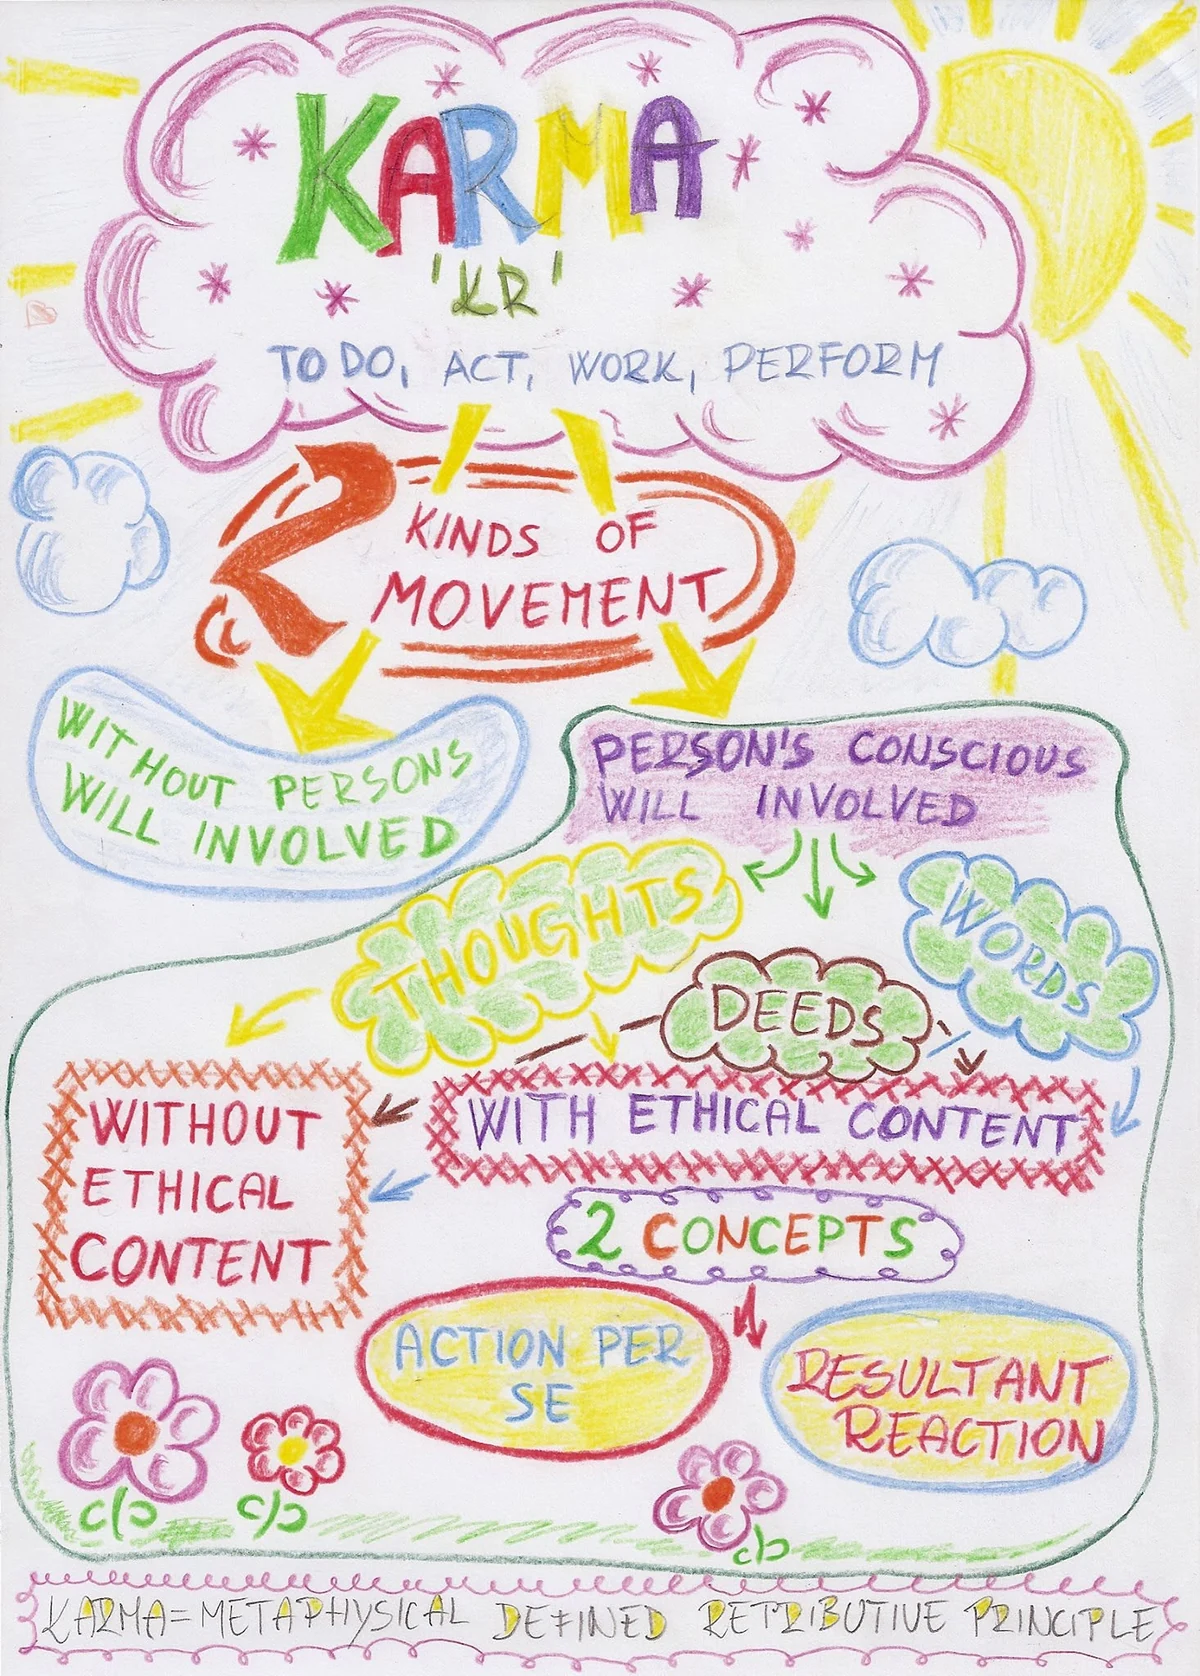 KARMA
'KR'
TO DO, ACT, WORK, PERFORM
2 KINDS OF
MOVEMENT
WITHOUT PERSONS
WILL INVOLVED
PERSON'S CONSCIOUS
WILL INVOLVED
THOUGHTS
DEEDS
WORDS
WITHOUT
ETHICAL
CONTENT
WITH ETHICAL CONTENT
2 CONCEPTS
ACTION PER
SE
RESULTANT
REACTION
KARMA=METAPHYSICAL DEFINED RETRIBUTIVE PRINCIPLE